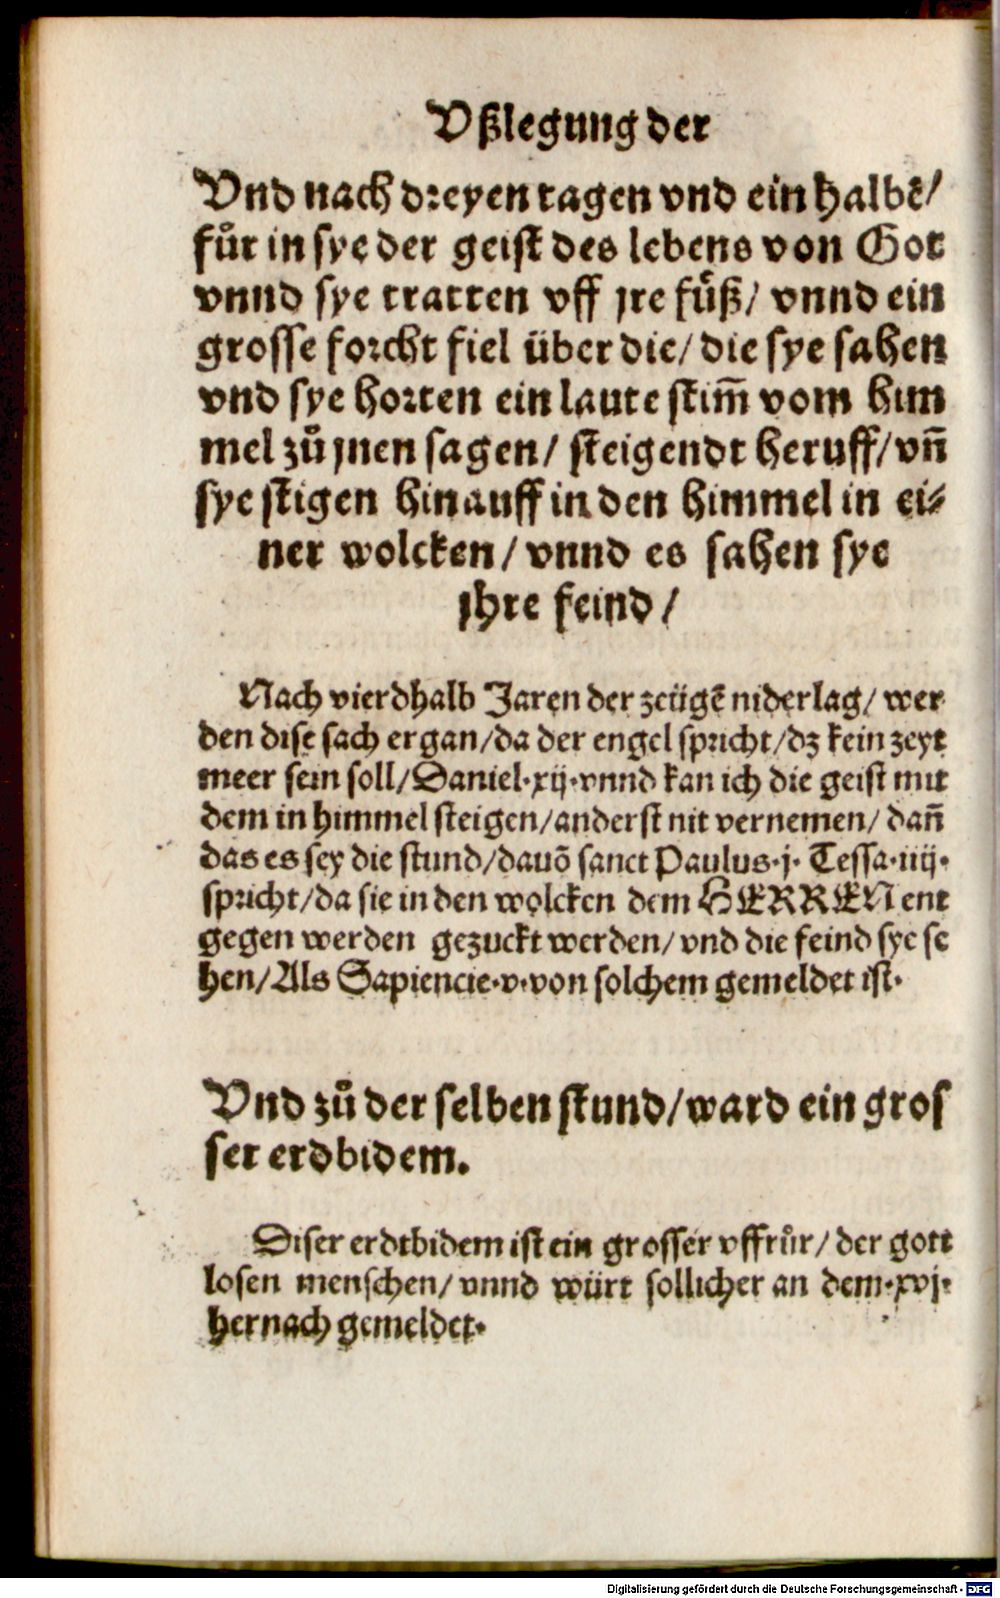 Vßlegung der
Vnd nach dreyen tagen vnd ein halbē/
fůr in sye der geist des lebens von Got
vnnd sye tratten vff jre fůß/ vnnd ein
grosse forcht fiel über die/ die sye sahen
vnd sye horten ein laute stim̄ vom him
mel zů jnen sagen/ steigendt heruff/ vn̄
sye stigen hinauff in den himmel in ei⸗
ner wolcken/ vnnd es sahen sye
jhre feind/
Nach vierdhalb Jaren der zeügē niderlag/ wer
den dise sach ergan/ da der engel spricht/ dz kein zeyt
meer sein soll/ Daniel.xij.vnnd kan ich die geist mit
dem in himmel steigen/ anderst nit vernemen/ dan̄
das es sey die stund/ dauō sanct Paulus.j. Tessa.iiij.
spricht/ da sie in den wolcken dem HERREN ent
gegen werden gezuckt werden/ vnd die feind sye se
hen/ Als Sapiencie.v.von solchem gemeldet ist.
Vnd zů der selben stund/ ward ein gros
ser erdbidem.
Diser erdtbidem ist ein grosser vffrůr/ der gott
losen menschen/ vnnd würt sollicher an dem.xvj.
hernach gemeldet.
Digitalisierung gefördert durch die Deutsche Forschungsgemeinschaft - DFG